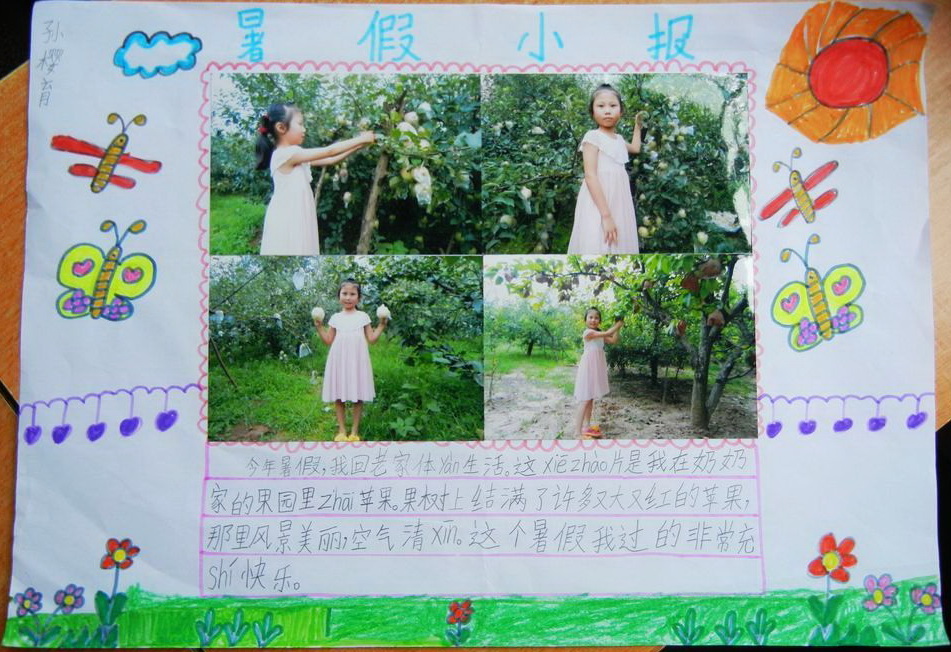 孙樱育
暑假小报
今年暑假,我回老家体yàn生活。这xiēzhào片是我在奶奶
家的果园里zhāi苹果。果树上结满了许多又大又红的苹果,
那里风景美丽,空气清xīn。这个暑假我过的非常充
shí快乐。